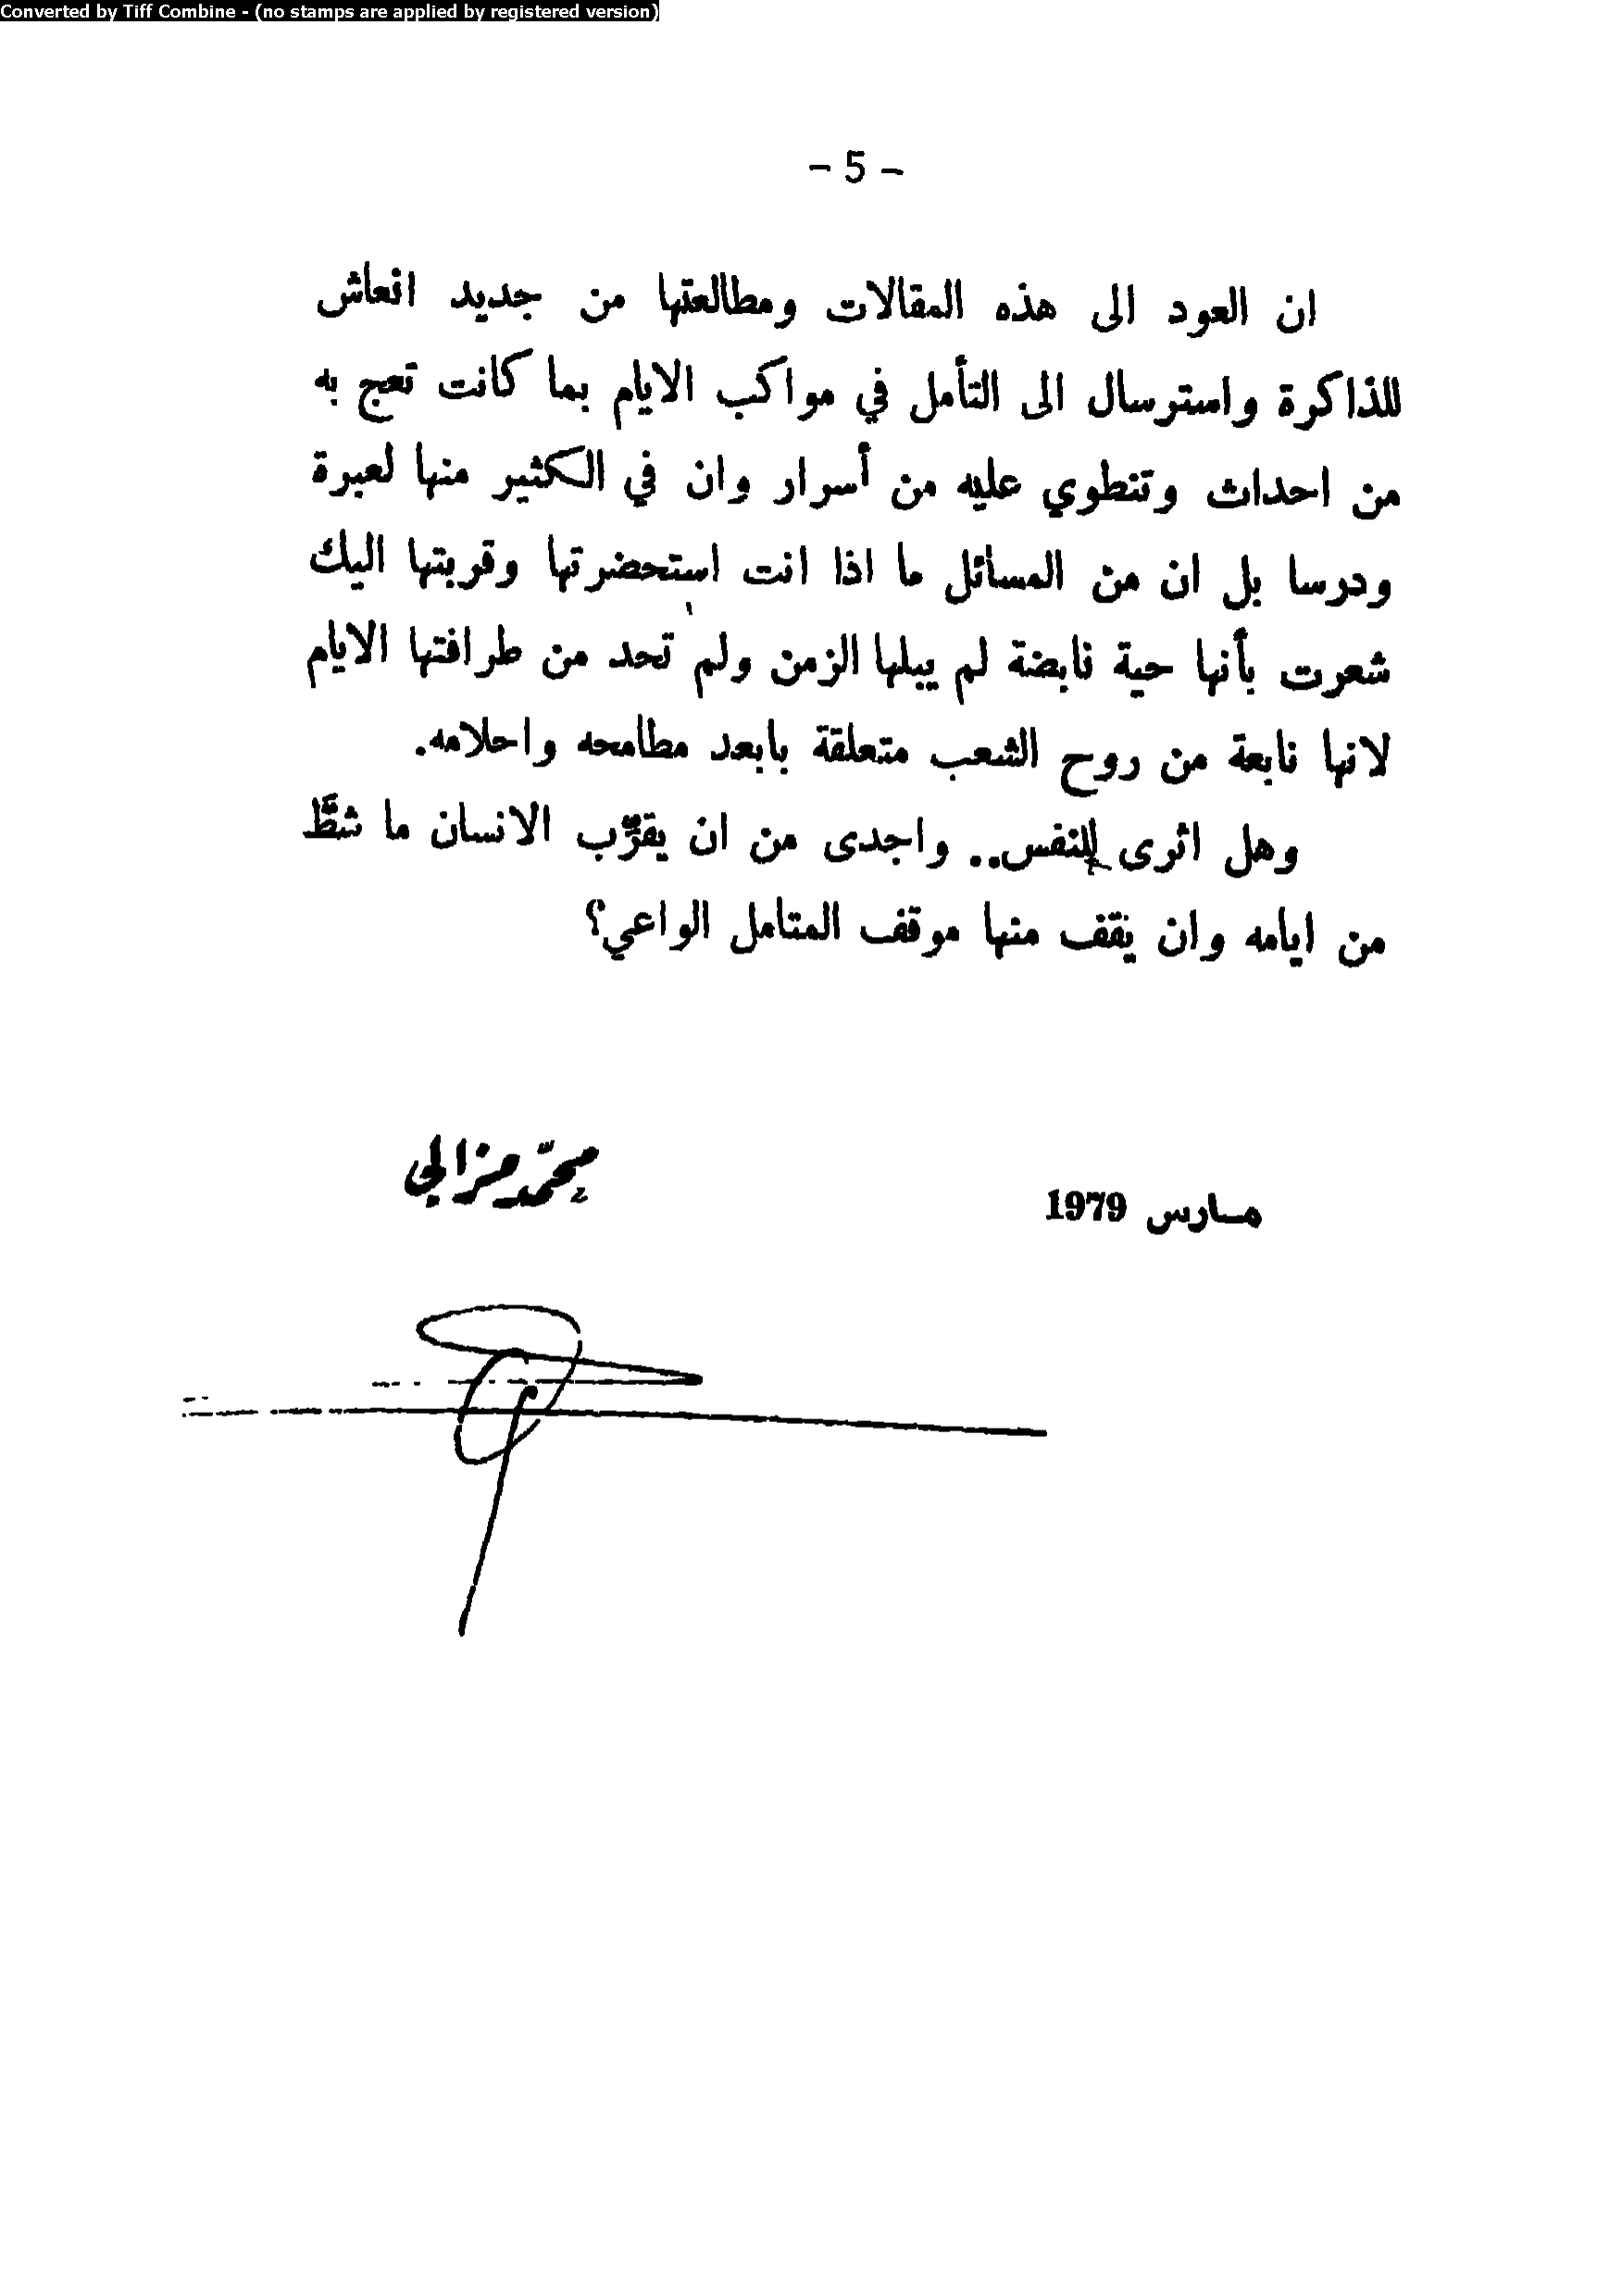 Converted by Tiff Combine - (no stamps are applied by registered version)
- 5 -
ان العود الى هذه المقالات ومطالعتها من جديد انعاش
للذاكرة واسترسال الى التأمل في مواكب الايام بما كانت تعج به
من احداث وتنطوي عليه من أسرار وان في الكثير منها لعبرة
ودرسا بل ان من المسائل ما اذا انت استحضرتها وقربتها اليك
شعرت بأنها حية نابضة لم يبلها الزمن ولم تحد من طرافتها الايام
لانها نابعة من روح الشعب متعلقة بابعد مطامحه واحلامه.
وهل اثرى للنفس.. واجدى من ان يقرّب الانسان ما شطّ
من ايامه وان يقف منها موقف المتامل الواعي؟
محمّد مزالي
مارس 1979